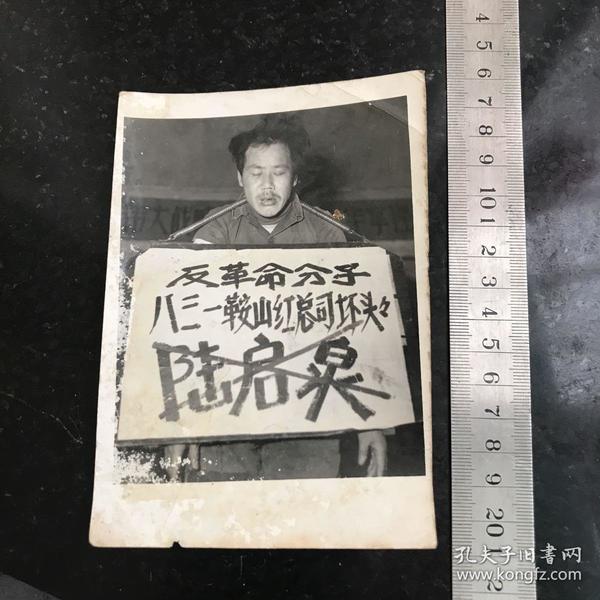 反革命分子
八三一鞍山红总司坏头々
陆启泉
4 5 6 7 8 9 10 1 2 3 4 5 6 7 8 9 20 1 2
孔夫子旧書网
www.kongfz.com